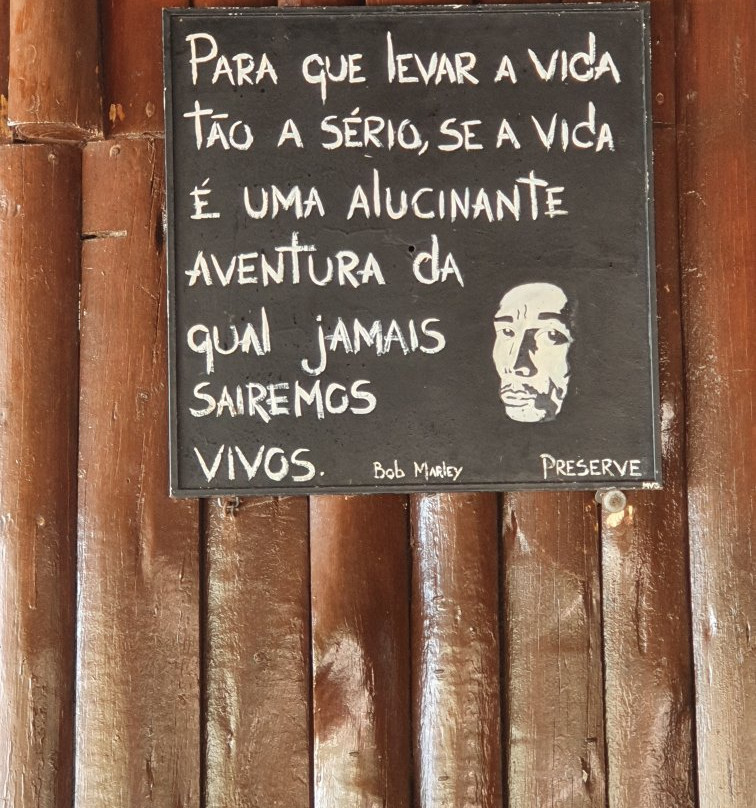 PARA QUE LEVAR A VIDA
TÃO A SÉRIO, SE A VIDA
É UMA ALUCINANTE
AVENTURA DA
QUAL JAMAIS
SAIREMOS
VIVOS.
BOB MARLEY
PRESERVE
MVS